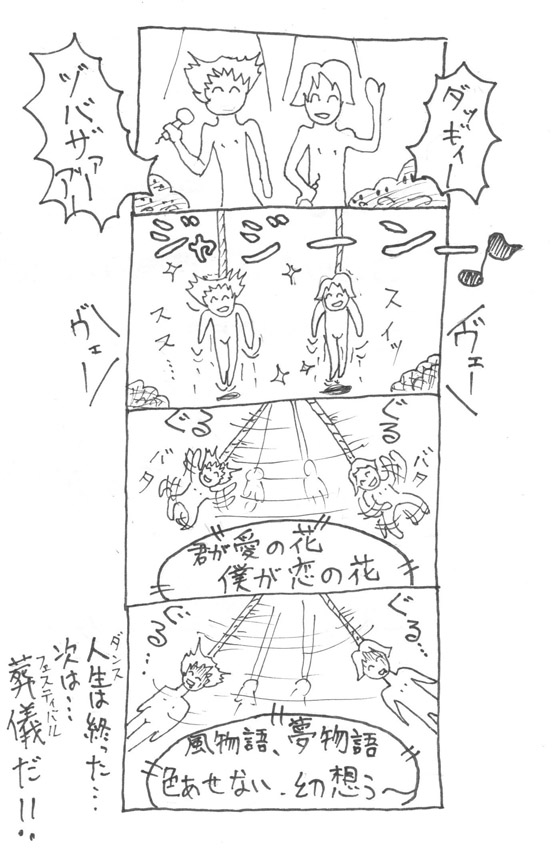 ダッギィー
ヅバザァー
アァー
ジャジーンー♪
スイッ
スス…
ヴェー
ヴェー
ぐる
ぐる
バタ
バタ
君が愛の花
僕が恋の花
ぐる…
ぐる…
風物語、夢物語
色あせない.幻想う〜
ダンス
人生は終った…
次は…
フェスティバル
葬儀だ!!